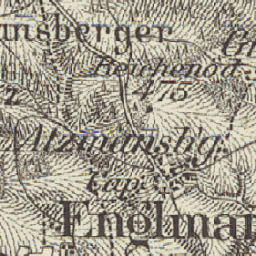 nsberger
Reichenöd
475
Atzmansb'g.
Cap.
Englmar